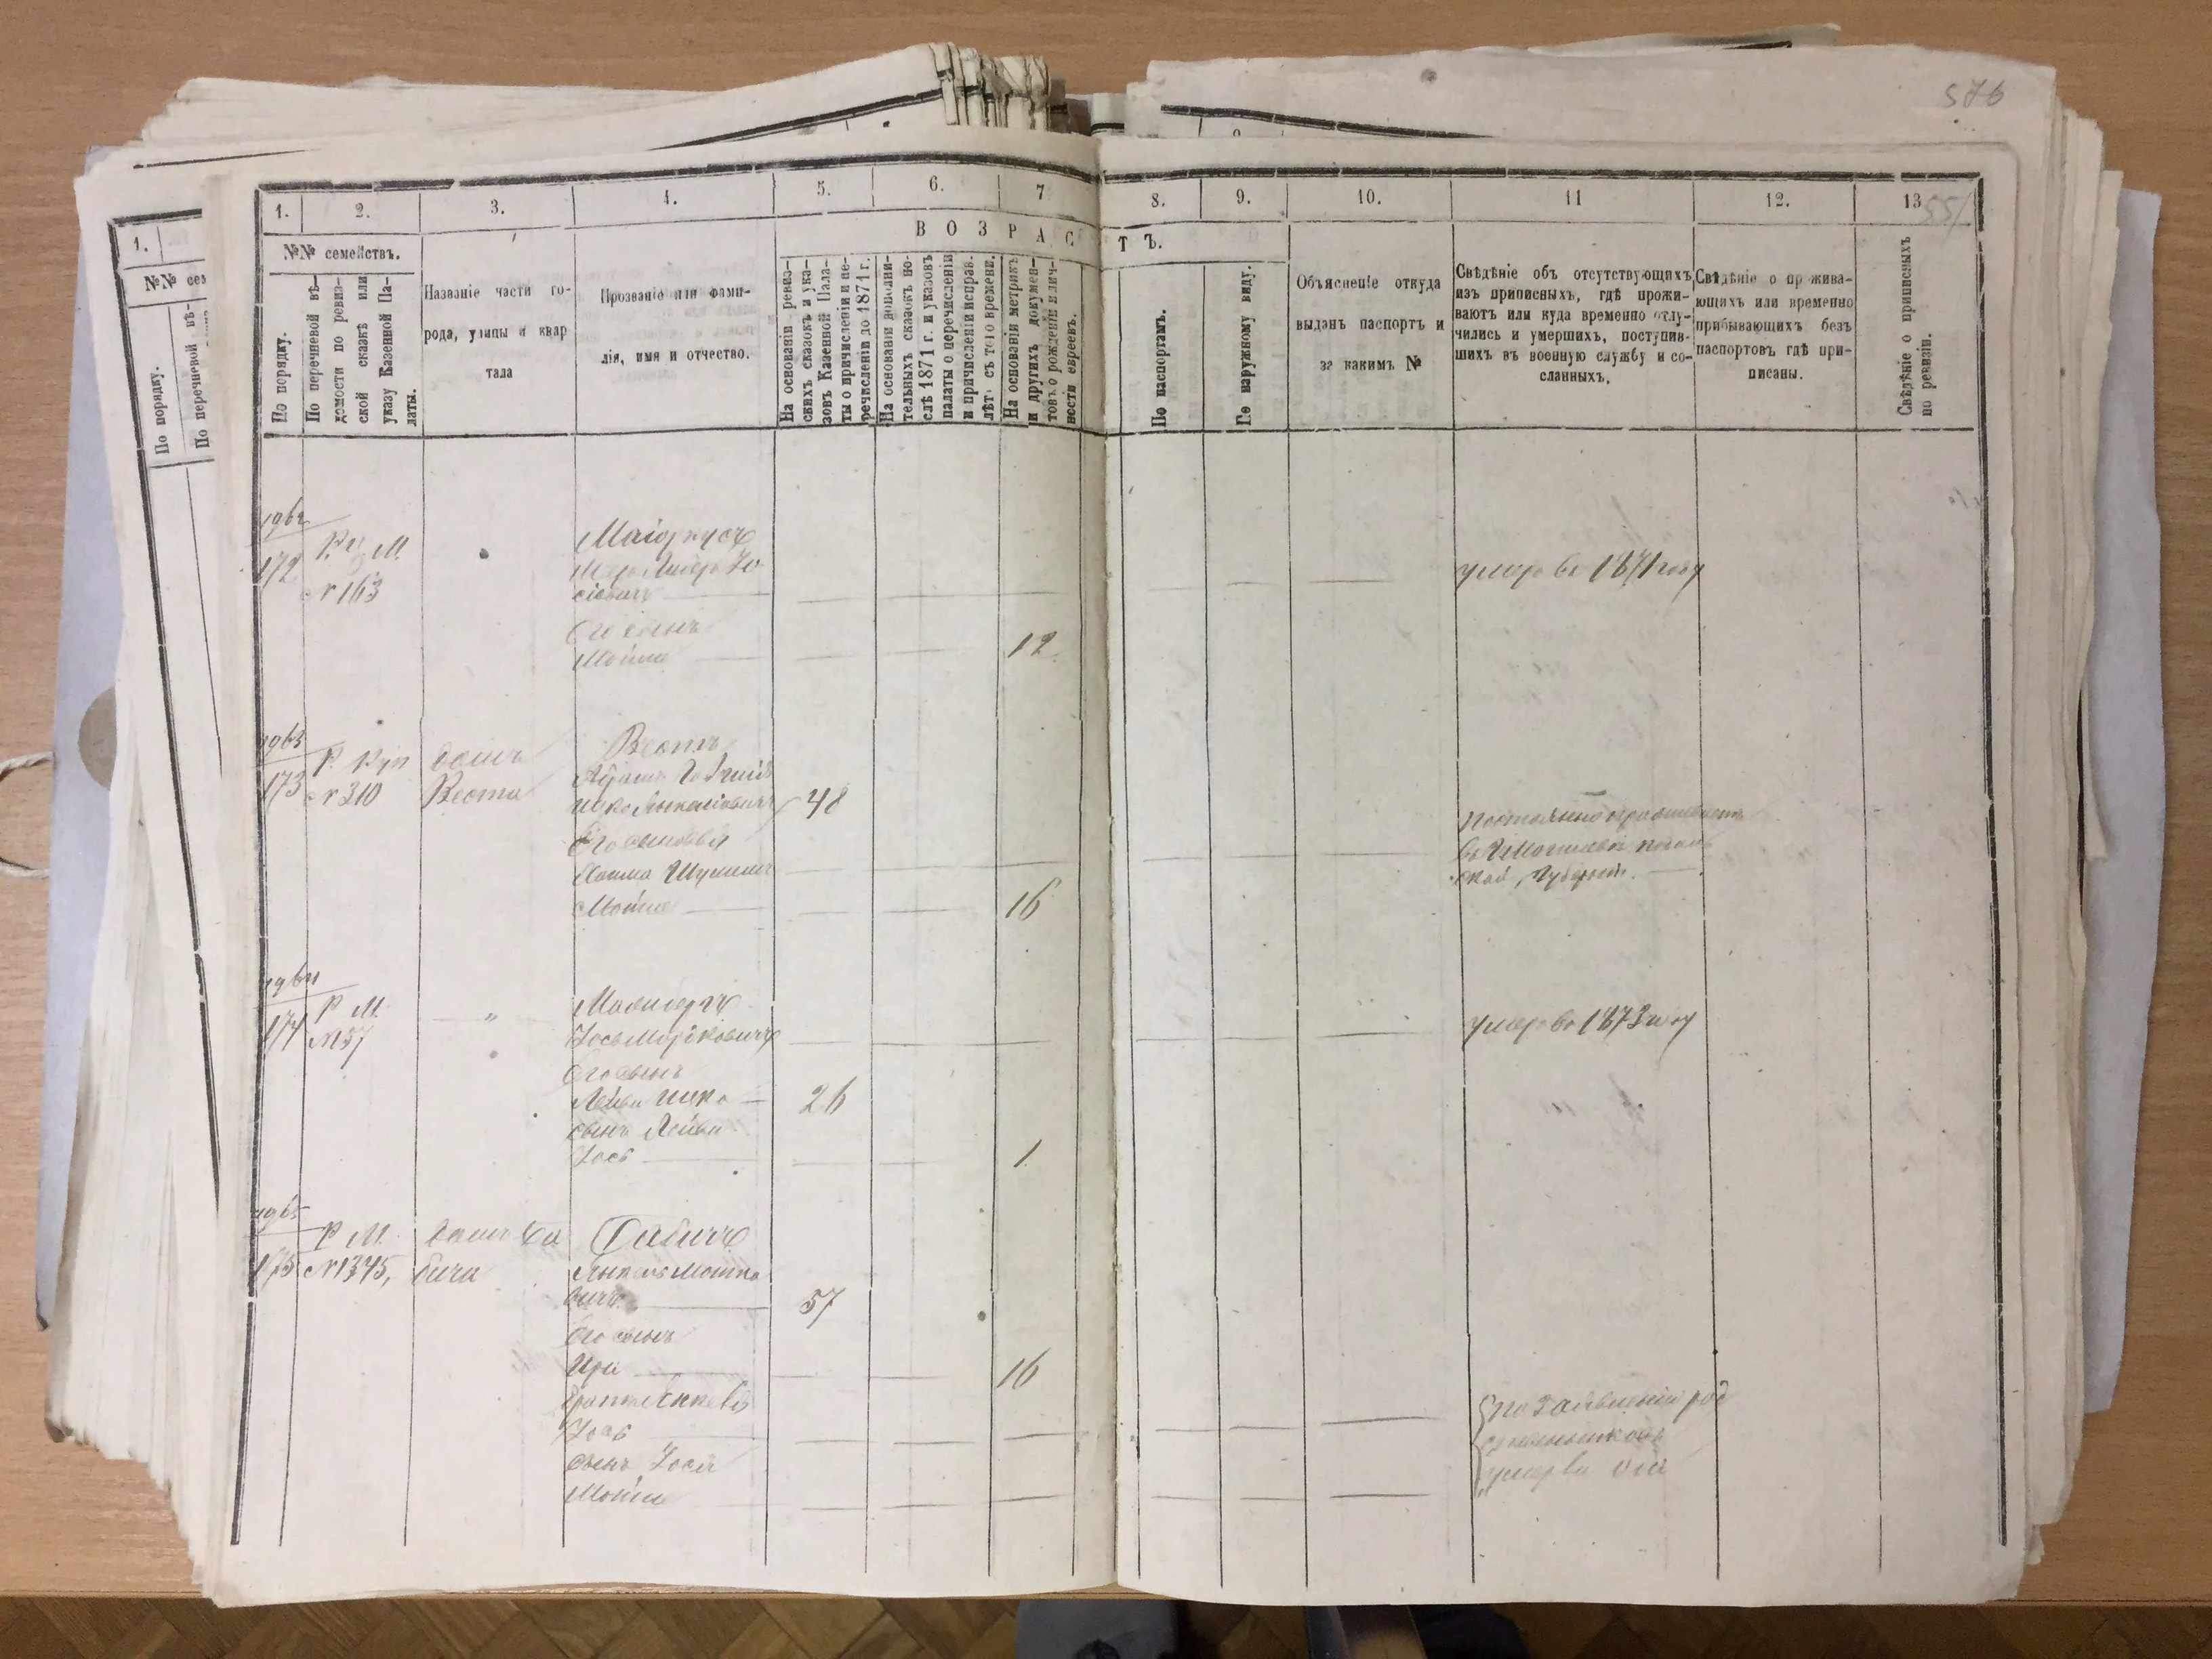 576
1. 2. 3. 4. 5. 6. 7. 8. 9. 10. 11 12. 13
551
В О З Р А С Т Ъ.
№№ семействъ.
По порядку.
По перечневой вѣ-
домости по ревиз-
ской сказкѣ или
указу Казенной Па-
латы.
Названіе части го-
рода, улицы и квар
тала
Прозваніе или фами-
лія, имя и отчество.
На основаніи ревиз-
скихъ сказокъ и ука-
зовъ Казенной Пала-
ты о причисленіи и пе-
речисленіи до 1871 г.
На основаніи дополни-
тельныхъ сказокъ по-
слѣ 1871 г. и указовъ
палаты о перечисленіи
и причисленіи исправ.
лѣтъ съ того времени.
На основаніи метрикъ
и другихъ докумен-
товъ о рожденіи и лич-
ности евреевъ.
По паспортамъ.
По наружному виду.
Объясненіе откуда
выданъ паспортъ и
за какимъ №
Свѣдѣніе объ отсутствующихъ
изъ приписныхъ, гдѣ прожи-
ваютъ или куда временно отлу-
чились и умершихъ, поступив-
шихъ въ военную службу и со-
сланныхъ.
Свѣдѣніе о прожива-
ющихъ или временно
прибывающихъ безъ
паспортовъ гдѣ при-
писаны.
Свѣдѣніе о приписныхъ
по ревизіи.
1.
№№ сем
По порядку.
По перечневой вѣ-
1962
172
М.
№ 163
Іо
сіовичъ
Его сынъ
Мойше 12
умеръ въ 1871 году
1963
173
Р. Куп
№ 310
домъ
Веста
Вестъ
48
Его сыновья
Мойше 16
Постоянно проживаетъ
въ
ской Губерніи.
1964
174
Р М.
№ 57
"
Іось Морковичъ
умеръ въ 1873 году
Его сынъ
Лейба Ицко 26
сынъ Лейбы
Іось 1
1965
175
Р М.
№ 1345,
домъ Са
бича
Сабичъ
Янкель Мошко
вичъ 57
Его сынъ
Ири 16
Іось
сынъ Іося
Мойше
по заявленію род
ственниковъ
умерли оба